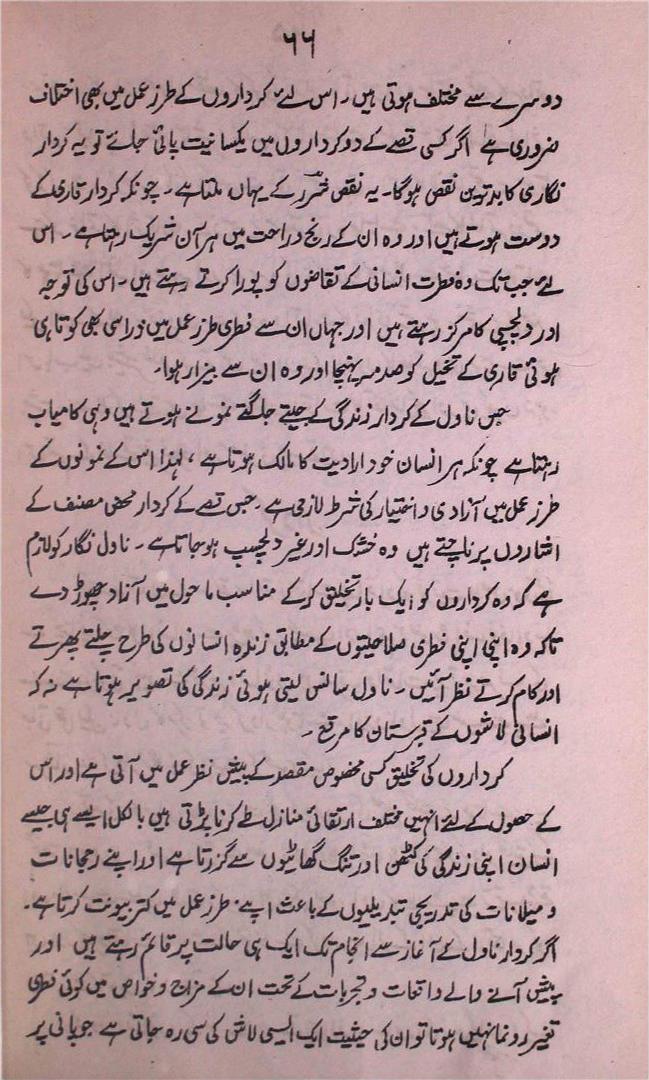 ۶۶
دوسرے سے مختلف ہوتی ہیں۔ اس لئے کرداروں کے طرز عمل میں بھی اختلاف
ضروری ہے اگر کسی قصے کے دو کرداروں میں یکسانیت پائی جائے تو یہ کردار
نگاری کا بدترین نقص ہوگا۔ یہ نقص شررؔ کے یہاں ملتا ہے۔ چونکہ کردار قاری کے
دوست ہوتے ہیں اور وہ ان کے رنج و راحت میں ہر آن شریک رہتا ہے۔ اس
لئے جب تک وہ فطرت انسانی کے تقاضوں کو پورا کرتے رہتے ہیں۔ اس کی توجہ
اور دلچسپی کا مرکز رہتے ہیں اور جہاں ان سے فطری طرز عمل میں ذرا سی بھی کوتاہی
ہوئی قاری کے تخیل کو صدمہ پہنچا اور وہ ان سے بیزار ہوا۔
جس ناول کے کردار زندگی کے جیتے جاگتے نمونے ہوتے ہیں وہی کامیاب
رہتا ہے چونکہ ہر انسان خود ارادیت کا مالک ہوتا ہے، لہٰذا اس کے نمونوں کے
طرز عمل میں آزادی و اختیار کی شرط لازمی ہے۔ جس قصے کے کردار محض مصنف کے
اشاروں پر ناچتے ہیں وہ خشک اور غیر دلچسپ ہو جاتا ہے۔ ناول نگار کو لازم
ہے کہ وہ کرداروں کو ایک بار تخلیق کر کے مناسب ماحول میں آزاد چھوڑ دے
تاکہ وہ اپنی اپنی فطری صلاحیتوں کے مطابق زندہ انسانوں کی طرح چلتے پھرتے
اور کام کرتے نظر آئیں۔ ناول سانس لیتی ہوئی زندگی کی تصویر ہوتا ہے نہ کہ
انسانی لاشوں کے قبرستان کا مرقع۔
کرداروں کی تخلیق کسی مخصوص مقصد کے پیش نظر عمل میں آتی ہے اور اس
کے حصول کے لئے انہیں مختلف ارتقائی منازل طے کرنا پڑتی ہیں بالکل ایسے ہی جیسے
انسان اپنی زندگی کی کٹھن اور تنگ گھاٹیوں سے گزرتا ہے اور اپنے رجحانات
و میلانات کی تدریجی تبدیلیوں کے باعث اپنے طرز عمل میں کتر بیونت کرتا ہے۔
اگر کردار ناول کے آغاز سے انجام تک ایک ہی حالت پر قائم رہتے ہیں اور
پیش آنے والے واقعات و تجربات کے تحت ان کے مزاج و خواص میں کوئی فطری
تغیر رونما نہیں ہوتا تو ان کی حیثیت ایک ایسی لاش کی سی رہ جاتی ہے جو پانی پر